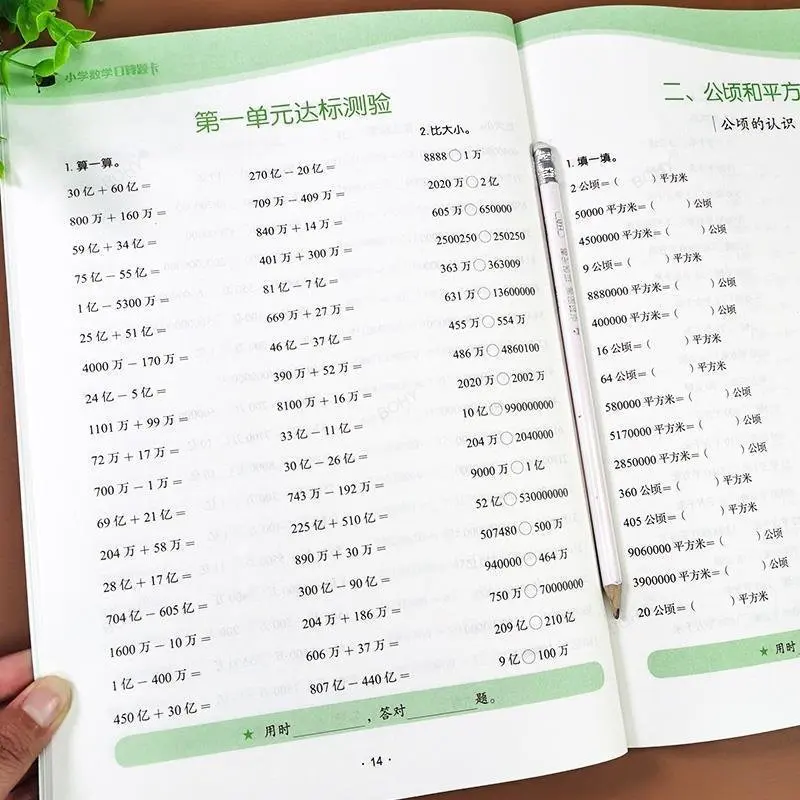 小学数学口算题卡
第一单元达标测验
1. 算一算。
30 亿 + 60 亿 =
800 万 + 160 万 =
59 亿 + 34 亿 =
75 亿 - 55 亿 =
1 亿 - 5300 万 =
25 亿 + 51 亿 =
4000 万 - 170 万 =
24 亿 - 5 亿 =
1101 万 + 99 万 =
72 万 + 17 万 =
700 万 - 1 万 =
69 亿 + 21 亿 =
204 万 + 58 万 =
28 亿 + 17 亿 =
704 亿 - 605 亿 =
1600 万 - 10 万 =
1 亿 - 400 万 =
450 亿 + 30 亿 =
270 亿 - 20 亿 =
709 万 - 409 万 =
840 万 + 14 万 =
401 万 + 300 万 =
81 亿 - 7 亿 =
669 万 + 27 万 =
46 亿 - 37 亿 =
390 万 + 52 万 =
8100 万 + 16 万 =
33 亿 - 11 亿 =
30 亿 - 26 亿 =
743 万 - 192 万 =
225 亿 + 510 亿 =
890 万 + 30 万 =
300 亿 - 90 亿 =
204 万 + 186 万 =
606 万 + 37 万 =
807 亿 - 440 亿 =
2. 比大小。
8888○1 万
2020 万○2 亿
605 万○650000
2500250○250250
363 万○363009
631 万○13600000
455 万○554 万
486 万○4860100
2020 万○2002 万
10 亿○990000000
204 万○2040000
9000 万○1 亿
52 亿○530000000
507480○500 万
940000○464 万
750 万○70000000
209 亿○210 亿
9 亿○100 万
★ 用时________，答对________题。
· 14 ·
二、公顷和平方
公顷的认识
1. 填一填。
2 公顷=( )平方米
50000 平方米=( )公顷
4500000 平方米=( )公顷
9 公顷=( )平方米
8880000 平方米=( )公顷
400000 平方米=( )公顷
16 公顷=( )平方米
64 公顷=( )平方米
580000 平方米=( )公顷
5170000 平方米=( )公顷
2850000 平方米=( )公顷
360 公顷=( )平方米
405 公顷=( )平方米
9060000 平方米=( )公顷
3900000 平方米=( )公顷
20 公顷=( )平方米
★ 用时